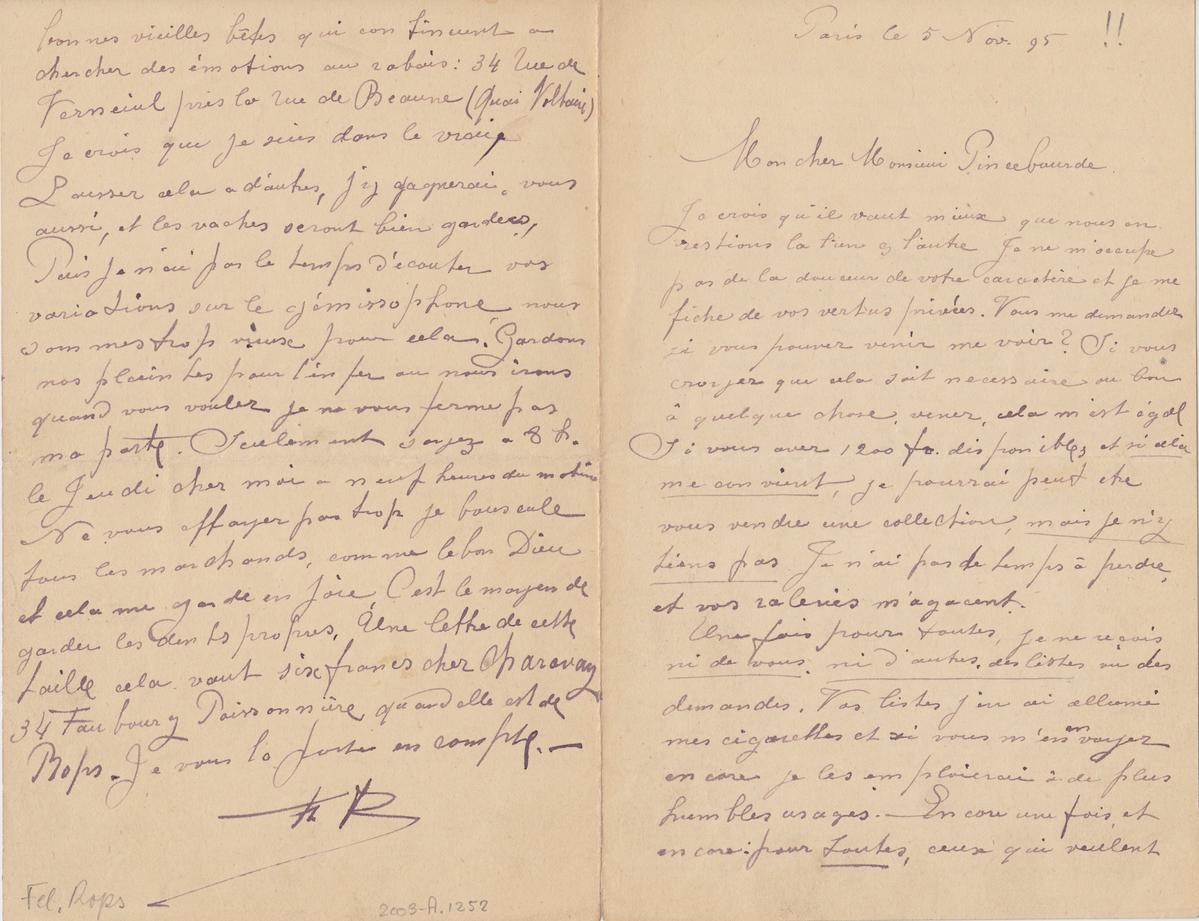 Paris le 5 Nov. 95 !!
Mon cher Monsieur Pincebourde
Je crois qu'il vaut mieux que nous en
restions là l'un & l'autre Je ne m'occupe
pas de la douceur de votre caractère et je me
fiche de vos vertus privées. Vous me demandez
si vous pouvez venir me voir? Si vous
croyez que cela soit necessaire ou bon
à quelque chose, venez, cela m'est égal
Si vous avez 1200 fr. disponibles et si cela
me convient, je pourrai peut etre
vous vendre une collection, mais je n'y
tiens pas Je n'ai pas le temps à perdre,
et vos râleries m'agacent.
Une fois pour toutes, je ne reçois
ni de vous, ni d'autres, des listes ou des
demandes. Vos listes j'en ai allumé
mes cigarettes et si vous m'en envoyez
encore je les emploierai à de plus
humbles usages. — Encore une fois, et
encore: pour toutes, ceux qui veulent
bonnes vieilles bêtes qui continuent a
chercher des émotions au rabais: 34 Rue de
Verneuil près la rue de Beaune (Quai Voltaire)
Je crois que je suis dans le vrai,
Laissez cela a d'autres, j'y gagnerai, vous
aussi, et les vaches seront bien gardées,
Puis je n'ai pas le temps d'écouter vos
variations sur le gémissophone, nous
sommes trop vieux pour cela. Gardons
nos plaintes pour l'enfer ou nous irons
quand vous voulez je ne vous ferme pas
ma porte. Seulement soyez a 8 h.
le Jeudi chez moi a neuf heures du matin
Ne vous effayez pas trop je bouscule
tous les marchands, comme le bon Dieu
et cela me garde en joie C'est le moyen de
garder les dents propres. Une lettre de cette
taille cela vaut six francs chez Charavay
34 Faubourg Poissonnière quand elle est de
Rops. Je vous la porte en compte. —
FR
Fel. Rops
2003-A.1252